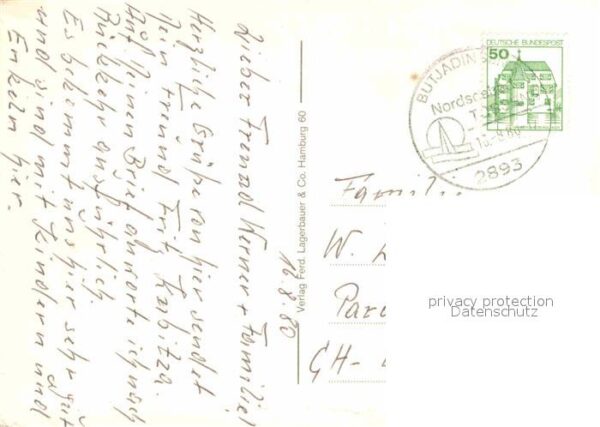 Lieber Freund Werner + Familie!
Herzliche Grüße von hier sendet
Dein Freund Fritz
Auf Deinen Brief antworte ich nach
Rückkehr ausführlich.
Es bekommt uns hier sehr gut
und sind mit Kindern und
Enkeln hier.
12.8.80
Verlag Ferd. Lagerbauer & Co. Hamburg 60
DEUTSCHE BUNDESPOST
50
BUTJADINGEN
Nordsee
-8.80
2893
Famili
W.
Par
CH-
privacy protection
Datenschutz